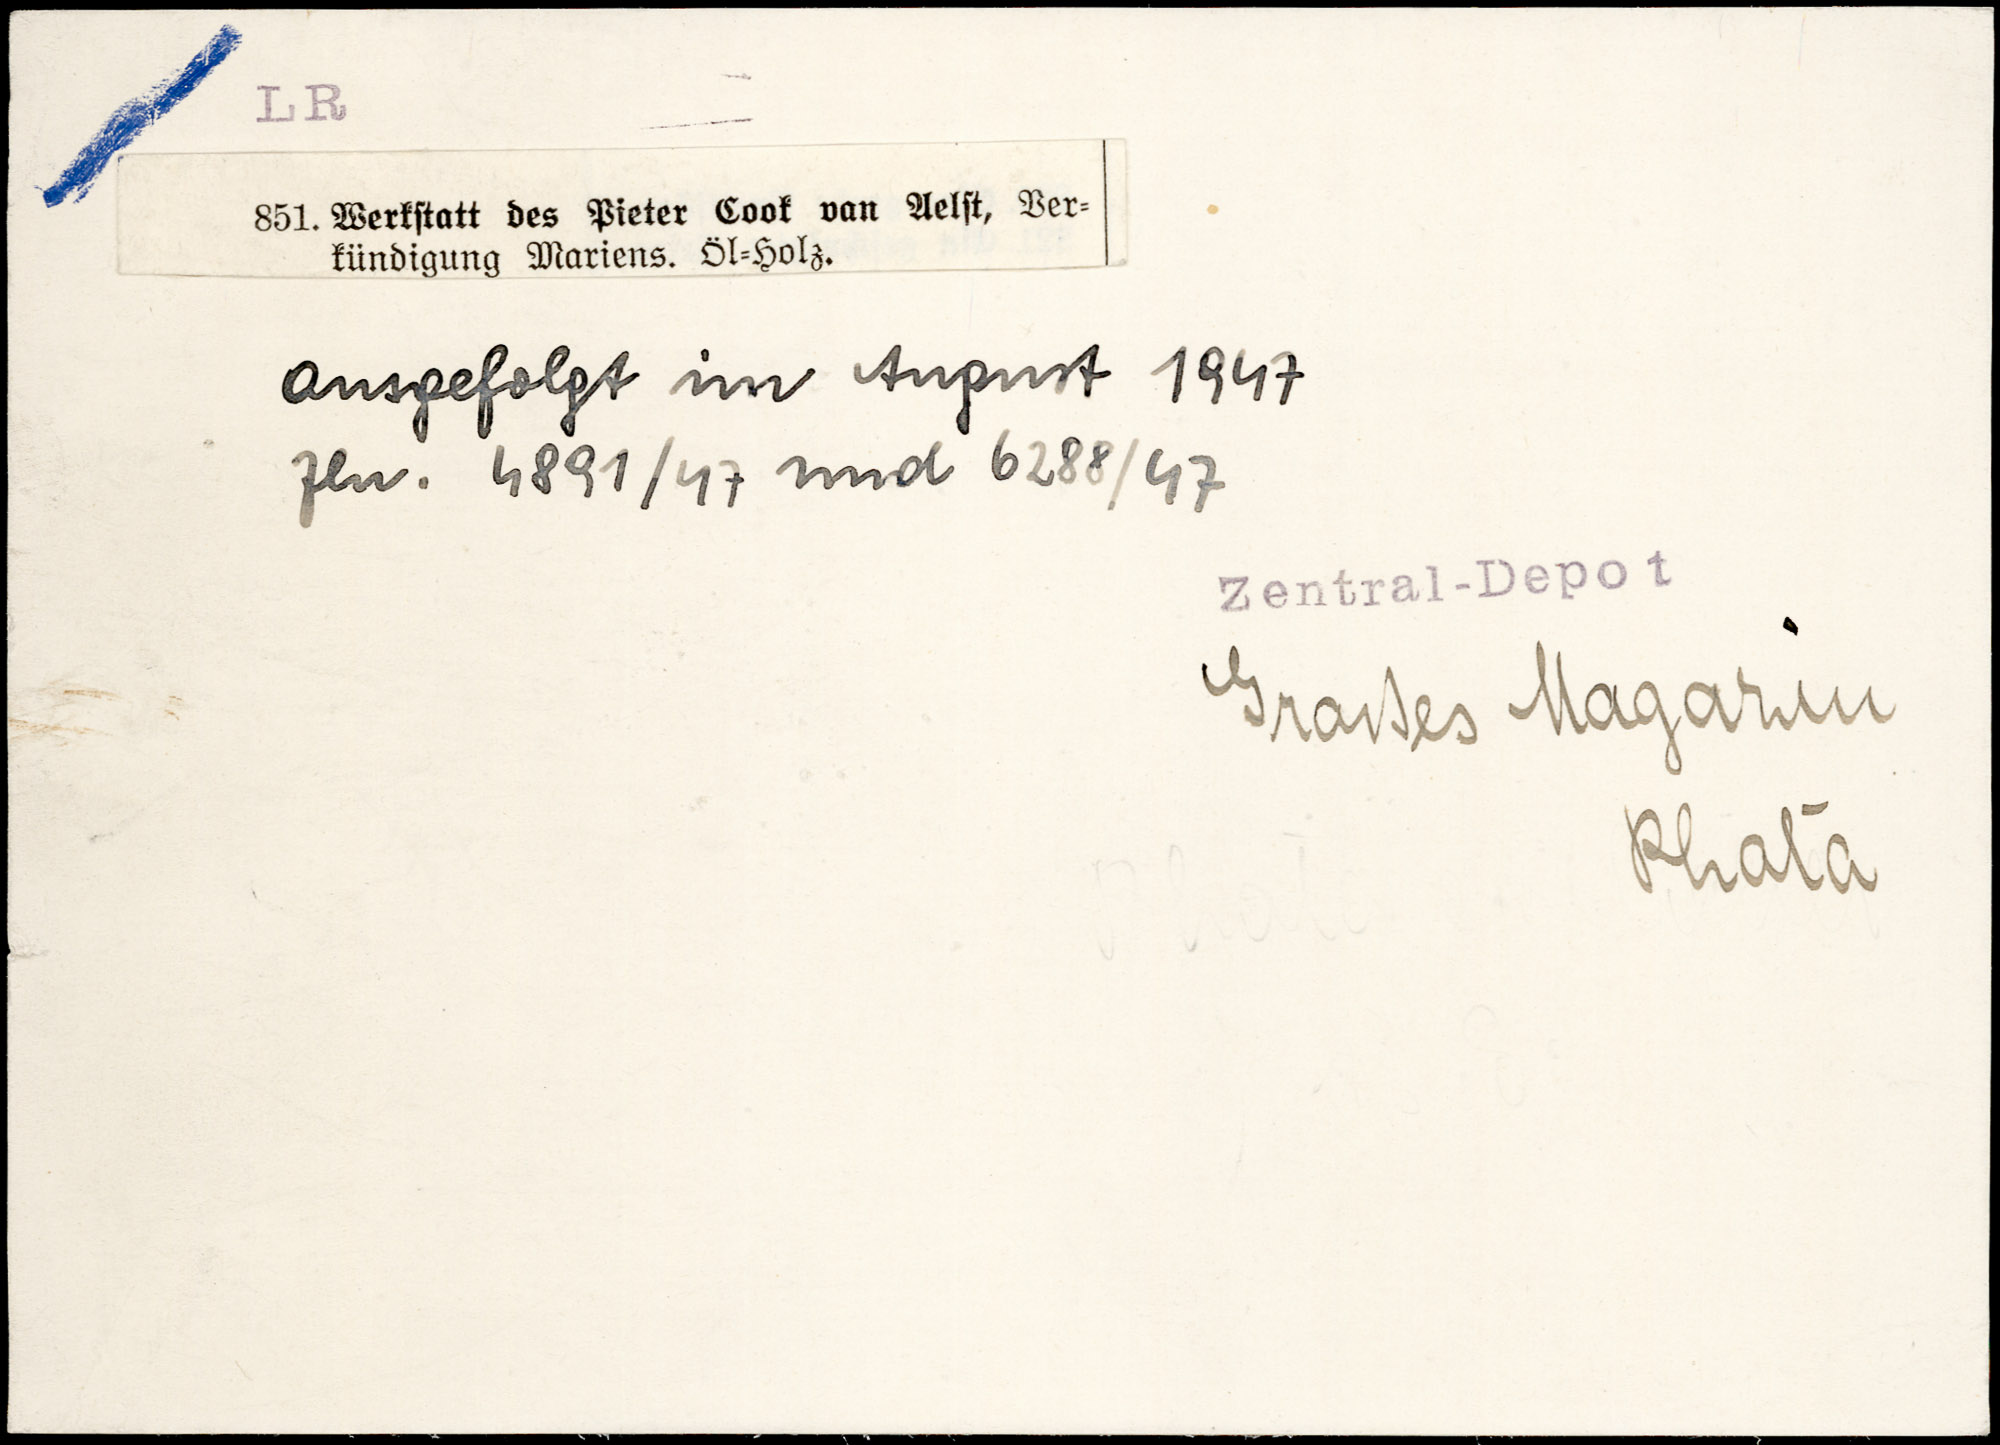 LR
851. Werkstatt des Pieter Cook van Aelst, Ver-
kündigung Mariens. Öl-Holz.
Ausgefolgt im August 1947
Zln. 4891/47 und 6288/47
Zentral-Depot
Großes Magazin
Photo